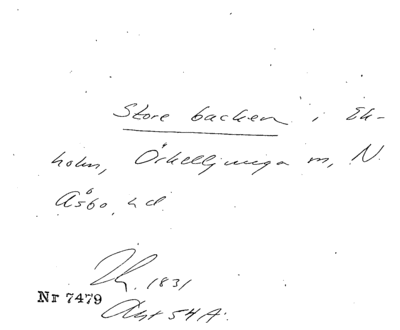 Store backen i Ek-
holm, Örkelljunga m, N.
Åsbo, hd.
1831
Nr 7479
54 A.